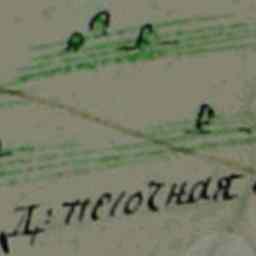 Д: песочная